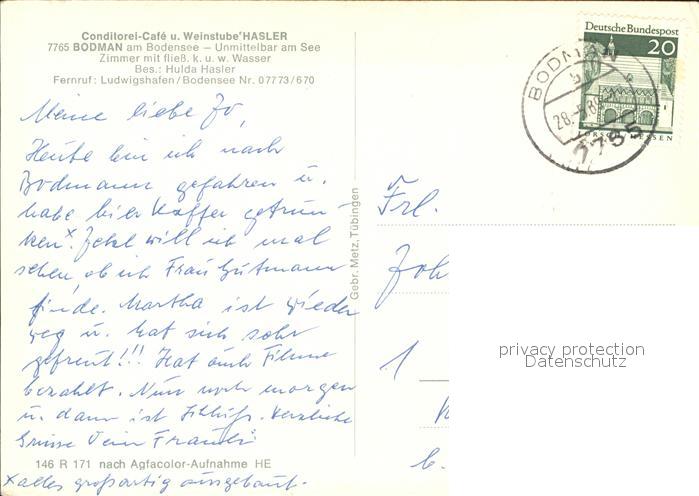 Conditorei-Café u. Weinstube HASLER
7765 BODMAN am Bodensee – Unmittelbar am See
Zimmer mit fließ. k. u. w. Wasser
Bes.: Hulda Hasler
Fernruf: Ludwigshafen/Bodensee Nr. 07773/670
Meine liebe Jo,
Heute bin ich nach
Bodmann gefahren u.
habe hier Kaffee getrun-
ken x. Jetzt will ich mal
sehen, ob ich Frau Gutmann
finde. Martha ist wieder
weg u. hat sich sehr
gefreut!!! Hat auch Filme
bezahlt. Nun noch morgen
u. dann ist Schluß. Herzliche
Grüsse Dein
x alles großartig ausgebaut.
146 R 171 nach Agfacolor-Aufnahme HE
Gebr. Metz, Tübingen
Deutsche Bundespost
20
LORSCH/HESSEN
BODMAN
7765
Frl.
Joh
1
b.
privacy protection
Datenschutz